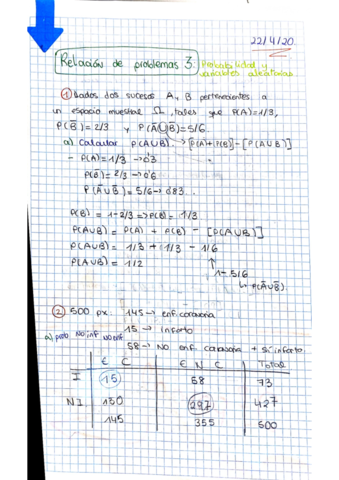 22/4/20
Relación de problemas 3: Probabilidad y
variables aleatorias
① Dados dos sucesos A y B pertenecientes a
un espacio muestral Ω, tales que P(A)=1/3,
P(B̅)=2/3 y P(A̅∪B̅)=5/6
a) Calcular P(A∪B). → [P(A)+P(B)]-[P(A∪B)]
- P(A)=1/3 → 0'3
P(B̅)= 2/3 → 0'6
P(A̅∪B̅)= 5/6 → 0'83...
P(B)= 1-2/3 => P(B)= 1/3
P(A∪B)= P(A) + P(B) - [P(A∪B)]
P(A∪B)= 1/3 + 1/3 - 1/6
P(A∪B)= 1/2
1-5/6
↳ P(A̅∪B̅)
② 500 px. 145 → enf. coronaria
15 → infarto
a) prob No inf No enf
58 → No enf. coronaria + sí infarto
E C E N C Total
I 15 58 73
NI 130 297 427
145 355 500